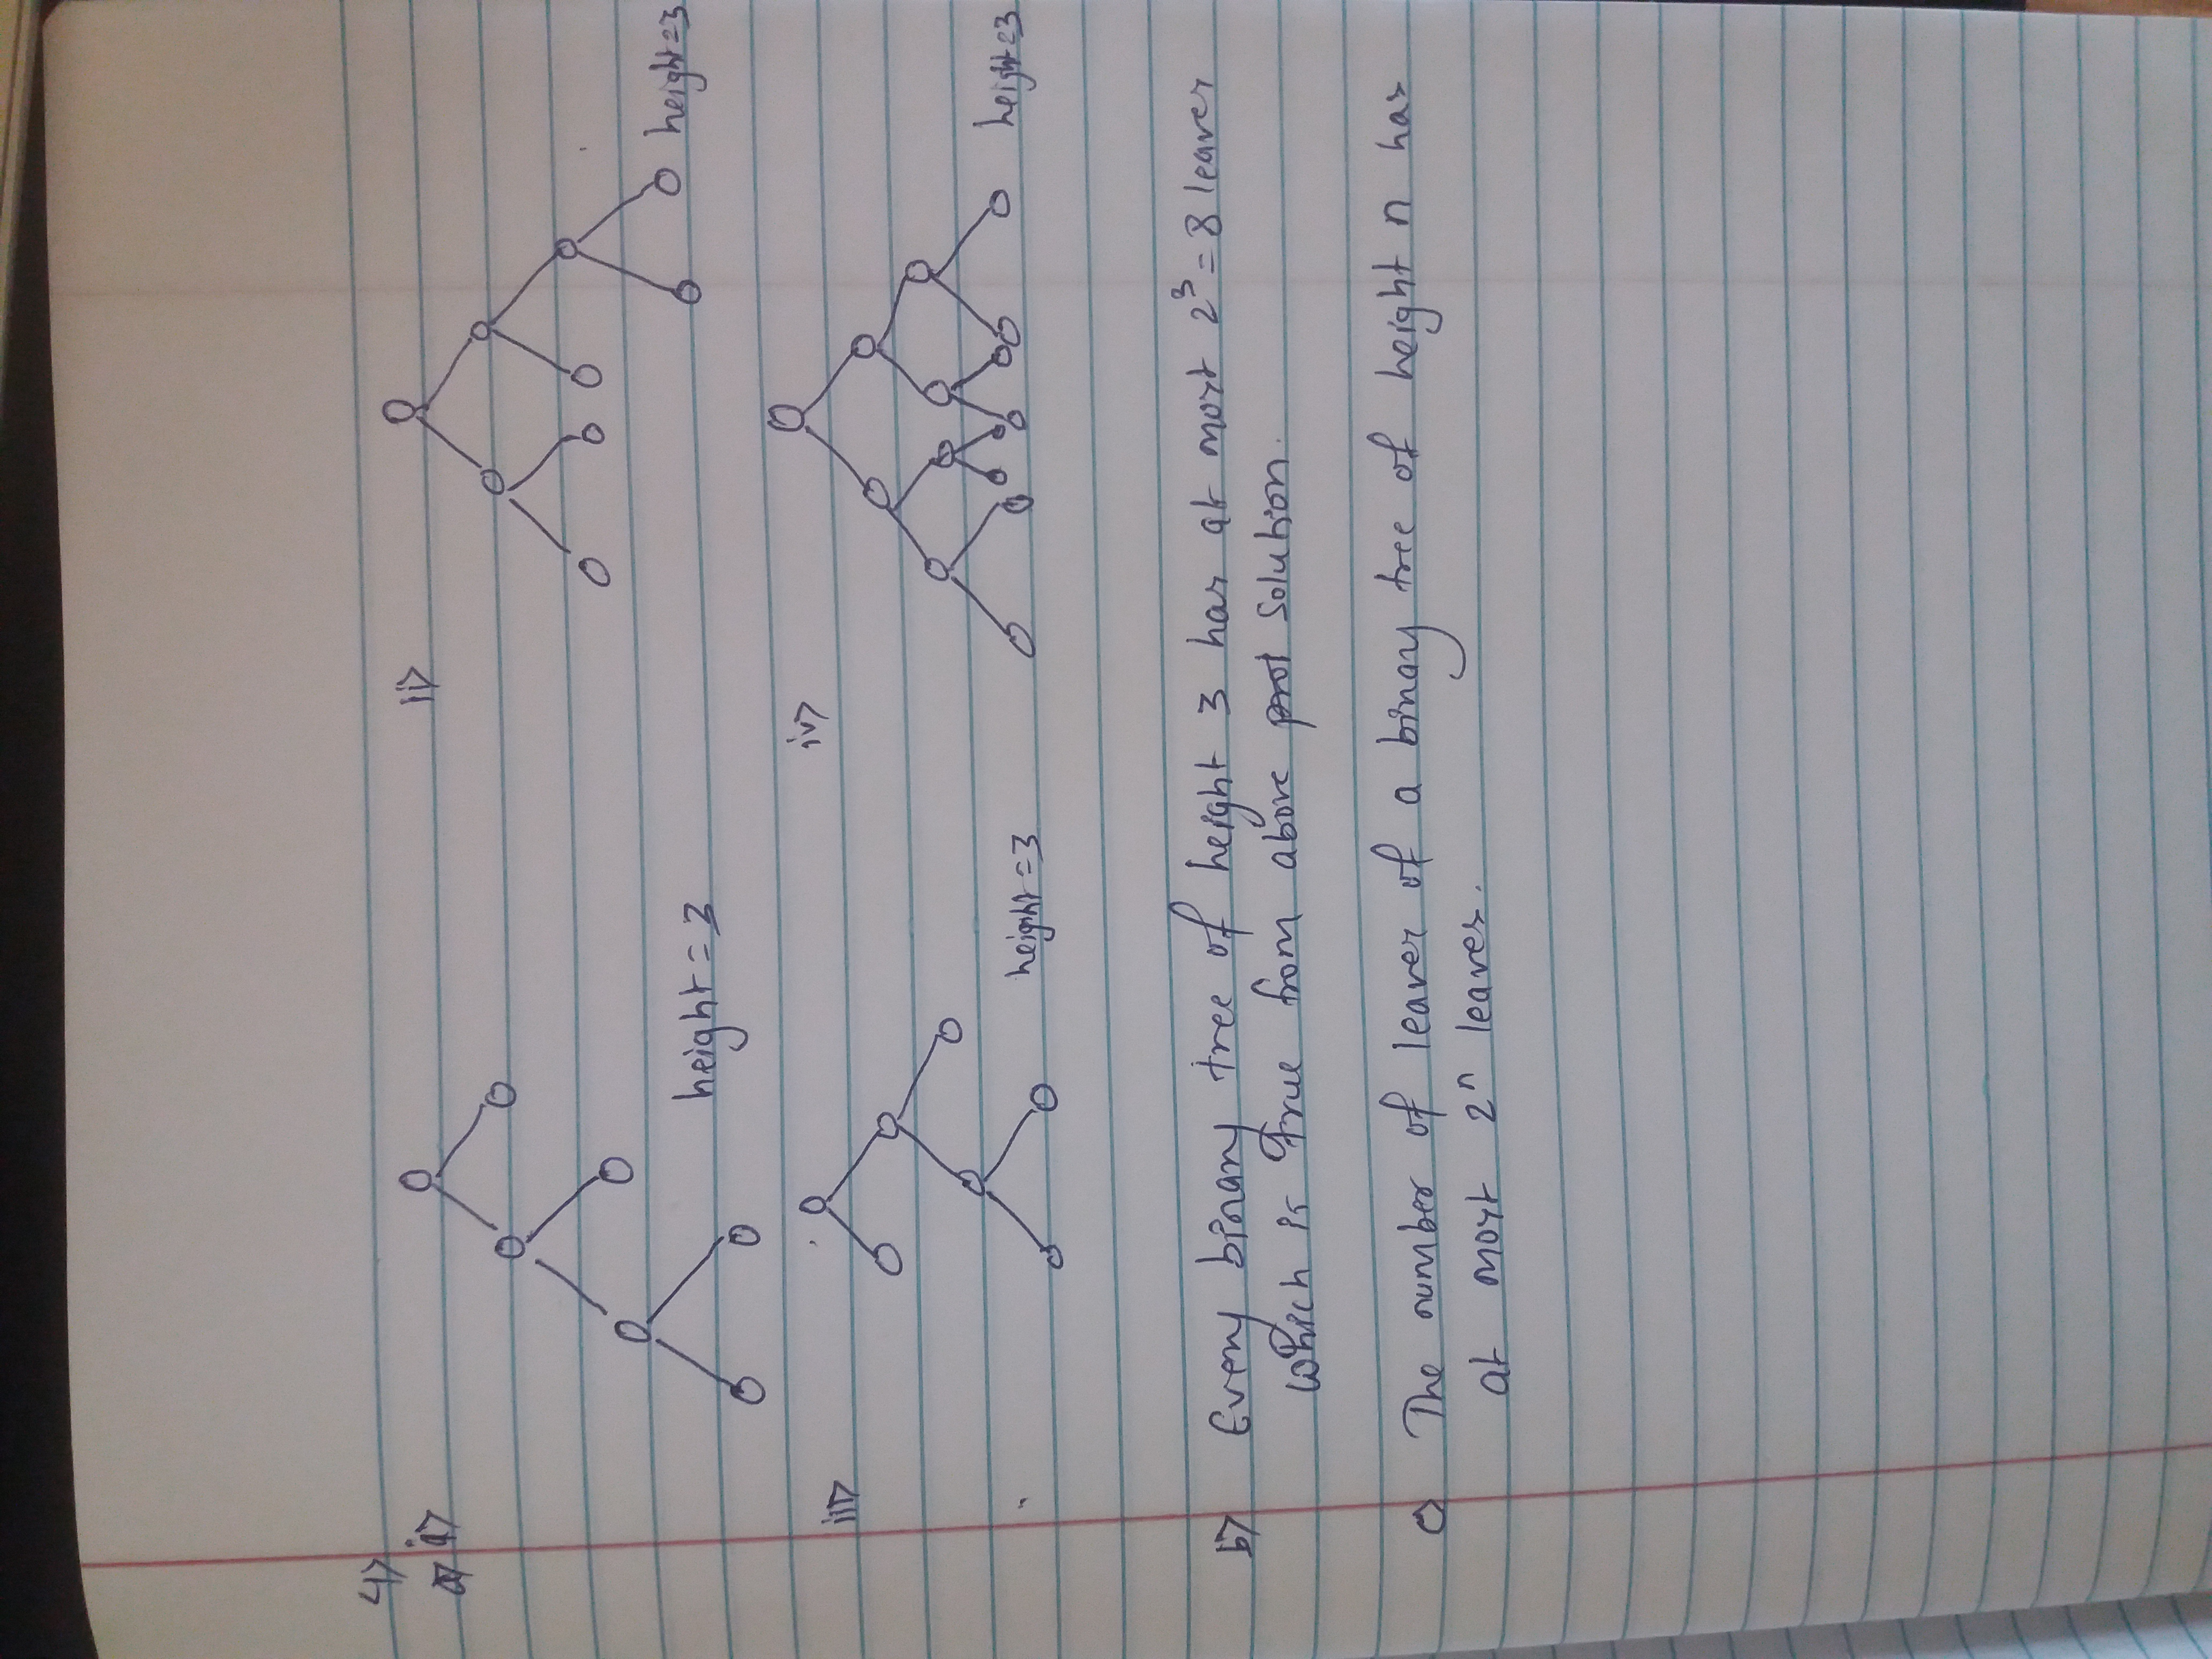 4)
a) i)
ii)
height = 3
height = 3
iii)
iv)
height = 3
height = 3
b) Every binary tree of height 3 has at most 2³ = 8 leaves
which is true from above solution.
c) The number of leaves of a binay tree of height n has
at most 2ⁿ leaves.